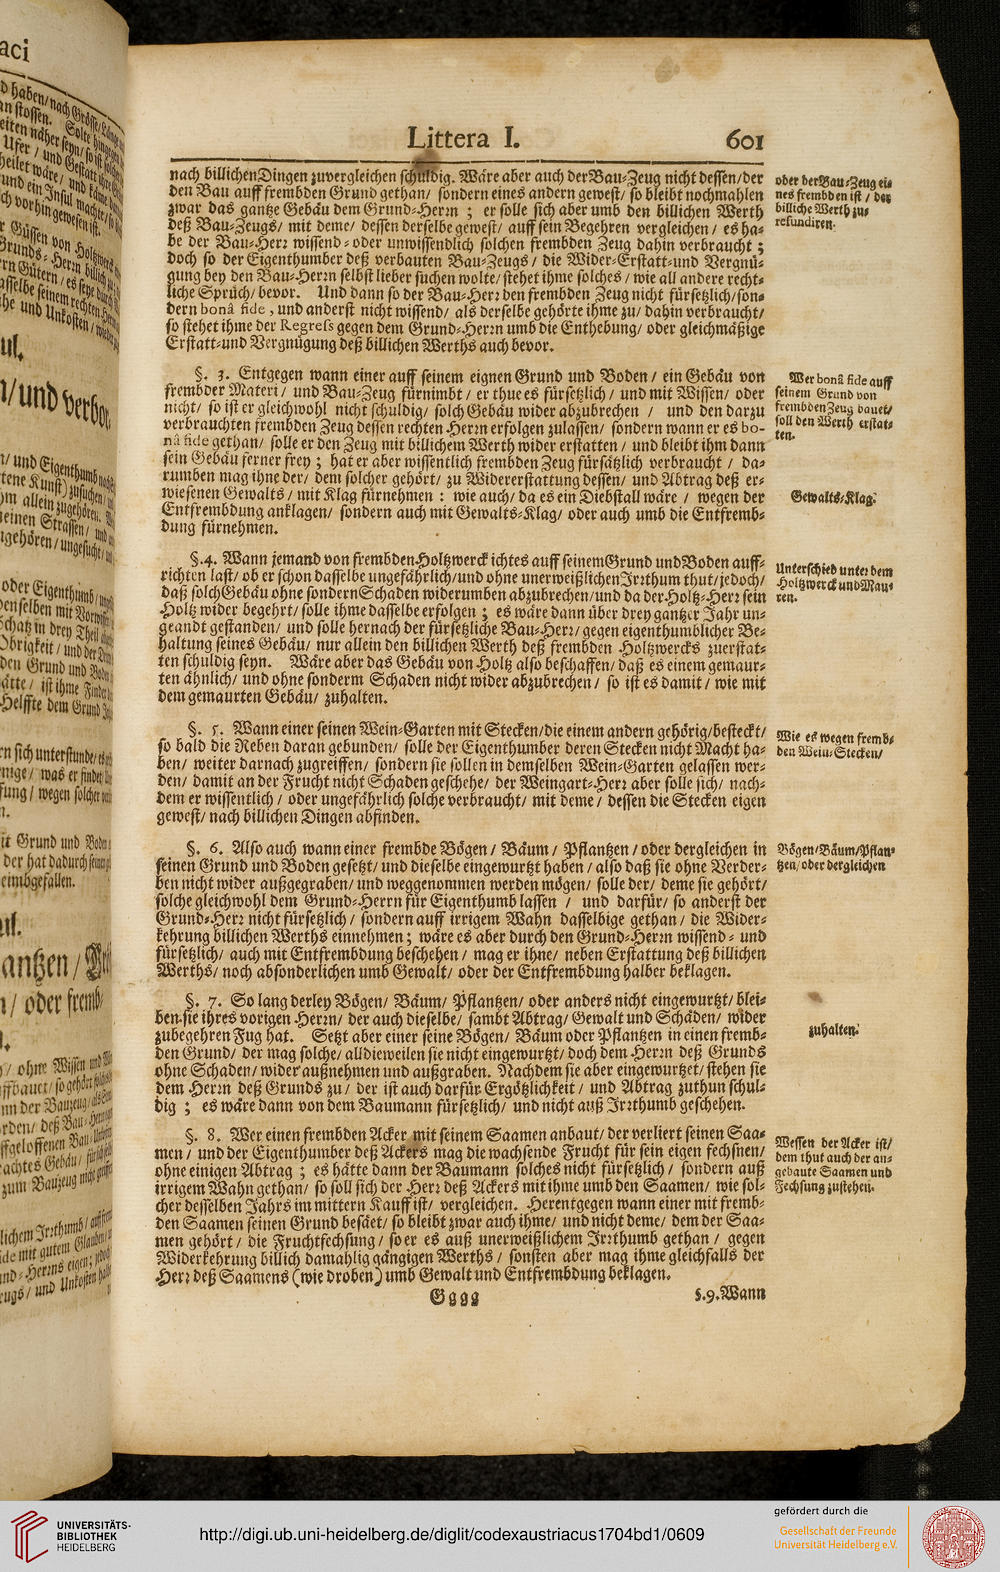 aci
Littera I. 601
nach billichen Dingen zuvergleichen schuldig. Wäre aber auch der Bau-Zeug nicht dessen/ der
den Bau auff frembden Grund gethan/ sondern eines andern gewest/ so bleibt nochmahlen
zwar das gantze Gebäu dem Grund-Herrn ; er solle sich aber umb den billichen Werth
deß Bau-Zeugs/ mit deme/ dessen derselbe gewest/ auff sein Begehren vergleichen / es ha-
be der Bau-Herr wissend- oder unwissendlich solchen frembden Zeug dahin verbraucht ;
doch so der Eigenthumber deß verbauten Bau-Zeugs / die Wider-Erstatt-und Vergnü-
gung bey den Bau-Herrn selbst lieber suchen wolte/ stehet ihme solches / wie all andere recht-
liche Sprüch/ bevor. Und dann so der Bau-Herr den frembden Zeug nicht fürsetzlich/ son-
dern bonâ fide, und anderst nicht wissend/ als derselbe gehörte ihme zu/ dahin verbraucht/
so stehet ihme der Regress gegen dem Grund-Herrn umb die Enthebung/ oder gleichmäßige
Erstatt-und Vergnügung deß billichen Werths auch bevor.
oder der Bau-Zeug ei-
nes frembden ist / der
billiche Werth zu-
refundiren.
§. 3. Entgegen wann einer auff seinem eignen Grund und Boden / ein Gebäu von
frembder Materi / und Bau-Zeug fürnimbt / er thue es fürsetzlich / und mit Wissen/ oder
nicht/ so ist er gleichwohl nicht schuldig/ solch Gebäu wider abzubrechen / und den darzu
verbrauchten frembden Zeug dessen rechten Herrn erfolgen zulassen/ sondern wann er es bo-
nâ fide gethan/ solle er den Zeug mit billichem Werth wider erstatten / und bleibt ihm dann
sein Gebäu ferner frey ; hat er aber wissentlich frembden Zeug fürsätzlich verbraucht / da-
rumben mag ihne der/ dem solcher gehört/ zu Widererstattung dessen/ und Abtrag deß er-
wiesenen Gewalts / mit Klag fürnehmen : wie auch/ da es ein Diebstall wäre / wegen der
Entfrembdung anklagen/ sondern auch mit Gewalts-Klag/ oder auch umb die Entfremb-
dung fürnehmen.
Wer bonâ fide auff
seinem Grund von
frembden Zeug bauet/
soll den Werth erstat-
ten.
Gewalts-Klag.
§. 4. Wann jemand von frembden Holtzwerck ichtes auff seinem Grund und Boden auff-
richten last/ ob er schon dasselbe ungefährlich/und ohne unerweißlichen Irrthum thut/ jedoch/
daß solch Gebäu ohne sondern Schaden widerumben abzubrechen/und da der Holtz-Herr sein
Holtz wider begehrt/ solle ihme dasselbe erfolgen ; es wäre dann über drey gantzer Jahr un-
geandt gestanden/ und solle hernach der fürsetzliche Bau-Herr/ gegen eigenthumblicher Be-
haltung seines Gebäu/ nur allein den billichen Werth deß frembden Holtzwercks zuerstat-
ten schuldig seyn. Wäre aber das Gebäu von Holtz also beschaffen/ daß es einem gemaur-
ten ähnlich/ und ohne sonderm Schaden nicht wider abzubrechen / so ist es damit / wie mit
dem gemaurten Gebäu/ zuhalten.
Unterschied unter dem
Holtzwerck und Mau-
ren.
§. 5. Wann einer seinen Wein-Garten mit Stecken/die einem andern gehörig/besteckt/
so bald die Reben daran gebunden/ solle der Eigenthumber deren Stecken nicht Macht ha-
ben/ weiter darnach zugreiffen/ sondern sie sollen in demselben Wein-Garten gelassen wer-
den/ damit an der Frucht nicht Schaden geschehe/ der Weingart-Herr aber solle sich/ nach-
dem er wissentlich / oder ungefährlich solche verbraucht/ mit deme / dessen die Stecken eigen
gewest/ nach billichen Dingen abfinden.
Wie es wegen fremb-
den Wein-Stecken/
§. 6. Also auch wann einer frembde Bögen / Bäum / Pflantzen / oder dergleichen in
seinen Grund und Boden gesetzt/ und dieselbe eingewurtzt haben / also daß sie ohne Verder-
ben nicht wider außgegraben/ und weggenommen werden mögen/ solle der/ deme sie gehört/
solche gleichwohl dem Grund-Herrn für Eigenthumb lassen / und darfür/ so anderst der
Grund-Herr nicht fürsetzlich / sondern auff irrigem Wahn dasselbige gethan / die Wider-
kehrung billichen Werths einnehmen ; wäre es aber durch den Grund-Herrn wissend- und
fürsetzlich/ auch mit Entfrembdung beschehen / mag er ihne/ neben Erstattung deß billichen
Werths/ noch absonderlichen umb Gewalt/ oder der Entfrembdung halber beklagen.
Bögen/Bäum/Pflan-
tzen/ oder dergleichen
§. 7. So lang derley Bögen/ Bäum/ Pflantzen/ oder anders nicht eingewurtzt/ blei-
ben sie ihres vorigen Herrn/ der auch dieselbe/ sambt Abtrag/ Gewalt und Schäden/ wider
zubegehren Fug hat. Setzt aber einer seine Bögen/ Bäum oder Pflantzen in einen fremb-
den Grund/ der mag solche/ alldieweilen sie nicht eingewurtzt/ doch dem Herrn deß Grunds
ohne Schaden/ wider außnehmen und außgraben. Nachdem sie aber eingewurtzet/ stehen sie
dem Herrn deß Grunds zu / der ist auch darfür Ergötzlichkeit / und Abtrag zuthun schul-
dig ; es wäre dann von dem Baumann fürsetzlich/ und nicht auß Irrthumb geschehen.
zuhalten.
§. 8. Wer einen frembden Acker mit seinem Saamen anbaut/ der verliert seinen Saa-
men / und der Eigenthumber deß Ackers mag die wachsende Frucht für sein eigen fechsnen/
ohne einigen Abtrag ; es hätte dann der Baumann solches nicht fürsetzlich / sondern auß
irrigem Wahn gethan/ so soll sich der Herr deß Ackers mit ihme umb den Saamen/ wie sol-
cher desselben Jahrs im mittern Kauff ist/ vergleichen. Herentgegen wann einer mit fremb-
den Saamen seinen Grund besäet/ so bleibt zwar auch ihme/ und nicht deme/ dem der Saa-
men gehört / die Fruchtfechsung / so er es auß unerweißlichem Irrthumb gethan / gegen
Widerkehrung billich damahlig gängigen Werths / sonsten aber mag ihme gleichfalls der
Herr deß Saamens (wie droben) umb Gewalt und Entfrembdung beklagen.
Wessen der Acker ist/
dem thut auch der an-
gebaute Saamen und
Fechsung zustehen.
Gggg §. 9. Wann
UNIVERSITÄTS-
BIBLIOTHEK
HEIDELBERG
http://digi.ub.uni-heidelberg.de/diglit/codexaustriacus1704bd1/0609
gefördert durch die
Gesellschaft der Freunde
Universität Heidelberg e.V.